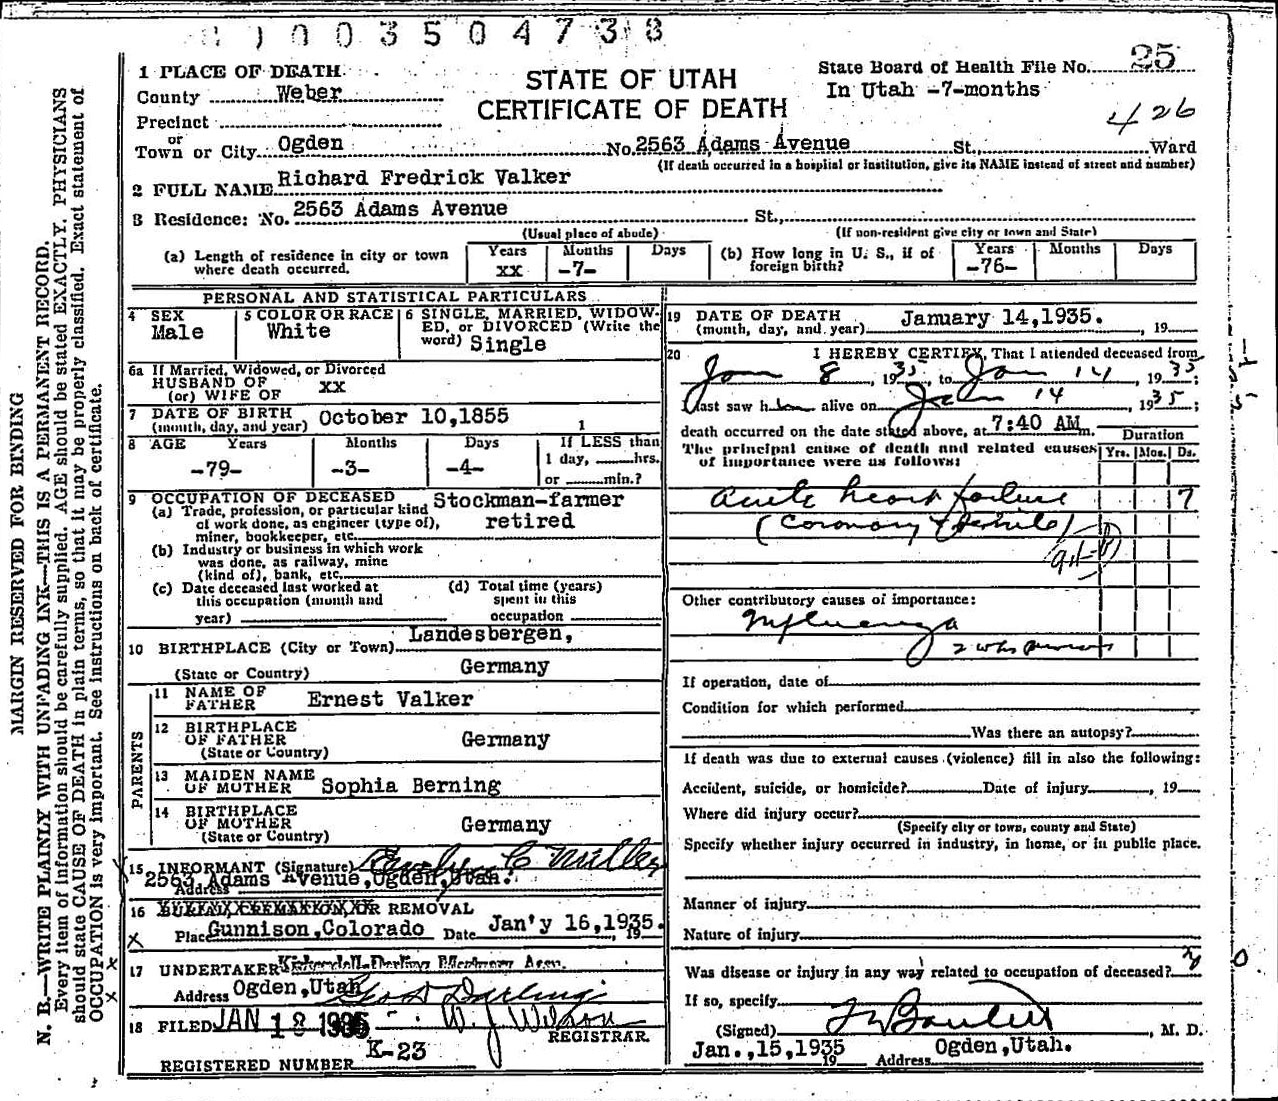 0035047 3 8
1 PLACE OF DEATH
County Weber
Precinct
or
Town or City Ogden No. 2563 Adams Avenue St., Ward
(If death occurred in a hospital or institution, give its NAME instead of street and number)
STATE OF UTAH
CERTIFICATE OF DEATH
State Board of Health File No. 25
In Utah -7-months
426
2 FULL NAME Richard Fredrick Valker
3 Residence: No. 2563 Adams Avenue St.,
(Usual place of abode) (If non-resident give city or town and State)
(a) Length of residence in city or town where death occurred. Years xx Months -7- Days
(b) How long in U. S., if of foreign birth? Years -76- Months Days
PERSONAL AND STATISTICAL PARTICULARS
4 SEX Male
5 COLOR OR RACE White
6 SINGLE, MARRIED, WIDOWED, or DIVORCED (Write the word) Single
6a If Married, Widowed, or Divorced
HUSBAND OF
(or) WIFE OF xx
7 DATE OF BIRTH
(month, day, and year) October 10,1855
8 AGE Years -79- Months -3- Days -4- If LESS than 1 day, hrs. or min.? 1
9 OCCUPATION OF DECEASED Stockman-farmer
(a) Trade, profession, or particular kind of work done, as engineer (type of), miner, bookkeeper, etc. retired
(b) Industry or business in which work was done, as railway, mine (kind of), bank, etc.
(c) Date deceased last worked at this occupation (month and year)
(d) Total time (years) spent in this occupation
10 BIRTHPLACE (City or Town) Landesbergen,
(State or Country) Germany
PARENTS
11 NAME OF FATHER Ernest Valker
12 BIRTHPLACE OF FATHER
(State or Country) Germany
13 MAIDEN NAME OF MOTHER Sophia Berning
14 BIRTHPLACE OF MOTHER
(State or Country) Germany
15 INFORMANT (Signature) C Miller
Address 2563 Adams Avenue,Ogden,Utah.
16 BURIAL, CREMATION, OR REMOVAL
Place Gunnison,Colorado Date Jan'y 16,1935. 19
17 UNDERTAKER
Address Ogden,Utah Geo D Darling
18 FILED JAN 18 1935 W. J Wilson
REGISTRAR.
REGISTERED NUMBER K-23
19 DATE OF DEATH
(month, day, and year) January 14,1935. , 19
20 I HEREBY CERTIFY, That I attended deceased from
Jan 8, 1935, to Jan 14, 1935;
I last saw him alive on Jan 14, 1935;
death occurred on the date stated above, at 7:40 AM m.
The principal cause of death and related causes of importance were as follows:
Duration
Yrs. Mos. Ds.
acute heart failure 7
(Coronary
Other contributory causes of importance:
Influenza
2 wks previous
If operation, date of
Condition for which performed
Was there an autopsy?
If death was due to external causes (violence) fill in also the following:
Accident, suicide, or homicide? Date of injury , 19
Where did injury occur?
(Specify city or town, county and State)
Specify whether injury occurred in industry, in home, or in public place.
Manner of injury
Nature of injury
Was disease or injury in any way related to occupation of deceased?
If so, specify
(Signed) , M. D.
Jan.,15,1935 19 Address Ogden,Utah.
MARGIN RESERVED FOR BINDING
N. B.—WRITE PLAINLY WITH UNFADING INK—THIS IS A PERMANENT RECORD.
Every item of information should be carefully supplied. AGE should be stated EXACTLY. PHYSICIANS
should state CAUSE OF DEATH in plain terms, so that it may be properly classified. Exact statement of
OCCUPATION is very important. See instructions on back of certificate.